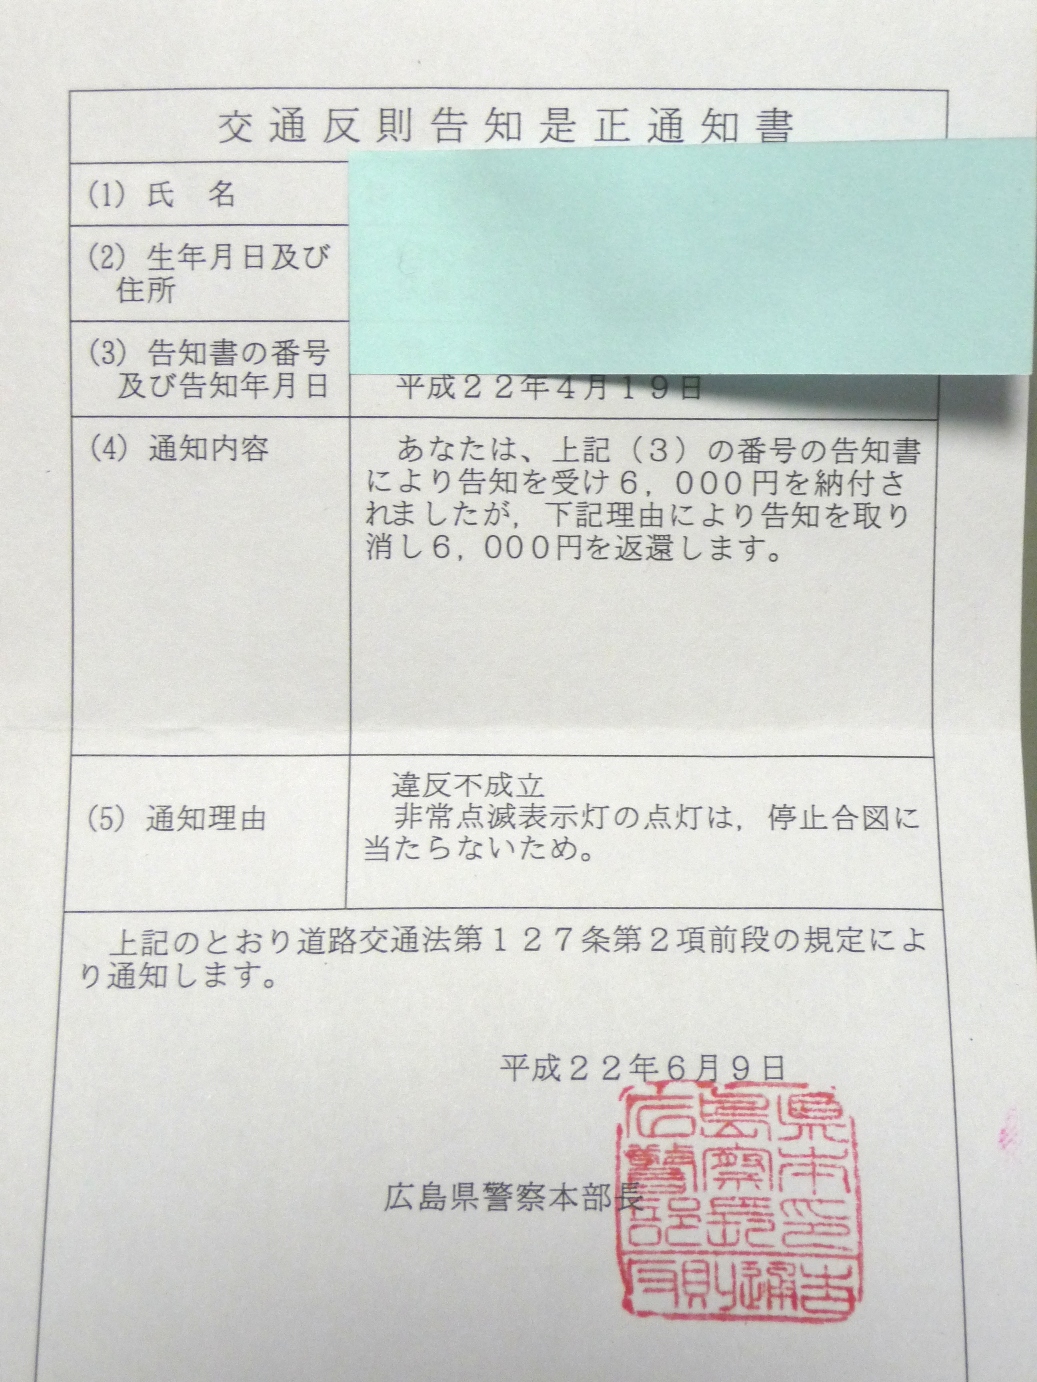 交通反則告知是正通知書
(1) 氏　名
(2) 生年月日及び
住所
(3) 告知書の番号
及び告知年月日
平成２２年４月１９日
(4) 通知内容
あなたは、上記（３）の番号の告知書
により告知を受け６，０００円を納付さ
れましたが，下記理由により告知を取り
消し６，０００円を返還します。
(5) 通知理由
違反不成立
非常点滅表示灯の点灯は，停止合図に
当たらないため。
上記のとおり道路交通法第１２７条第２項前段の規定によ
り通知します。
平成２２年６月９日
広島県警察本部長
広島県
警察本
部長印
反則通告